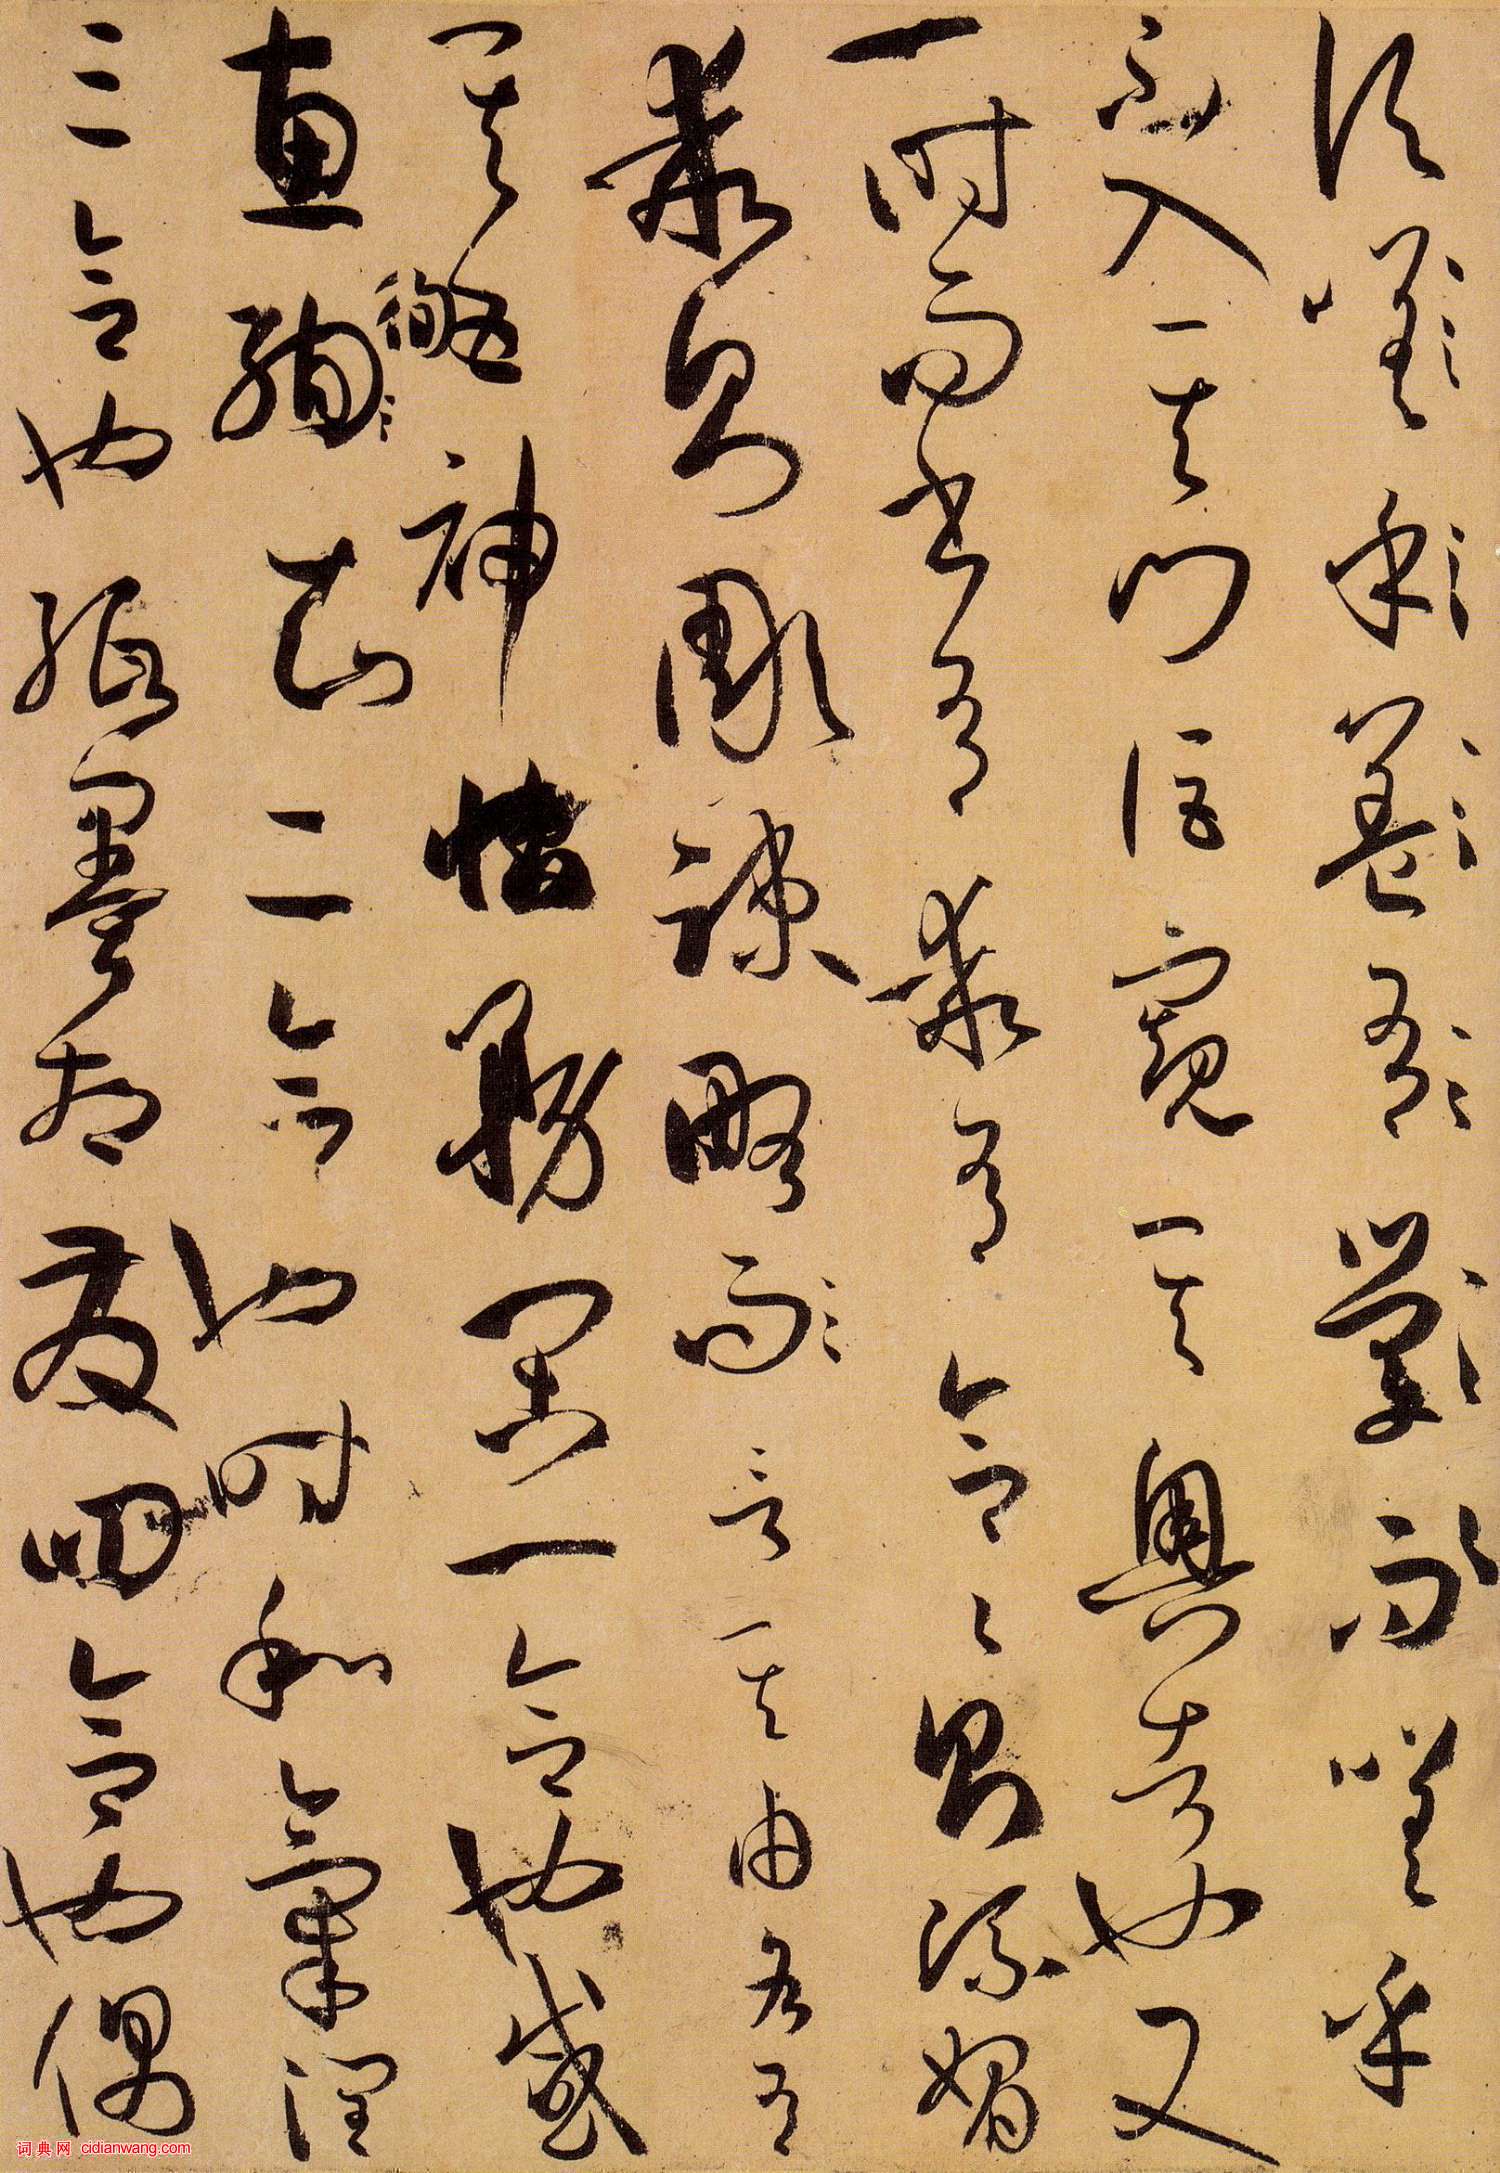 頃嗟乎蓋有學而嗟乎
不入其門詎窺其奧者也又
一時而書有乖有合合則流媚
乖則彫疎略而言其由各有
其五神怡務閑一合也感
惠徇知二合也時和氣潤
三合也紙墨相發四合也偶
词典网 cidianwang.com